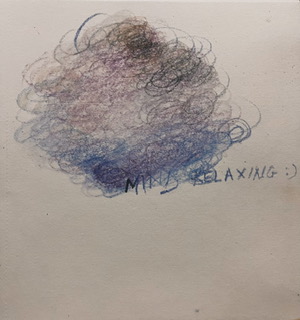 MIND RELAXING :)